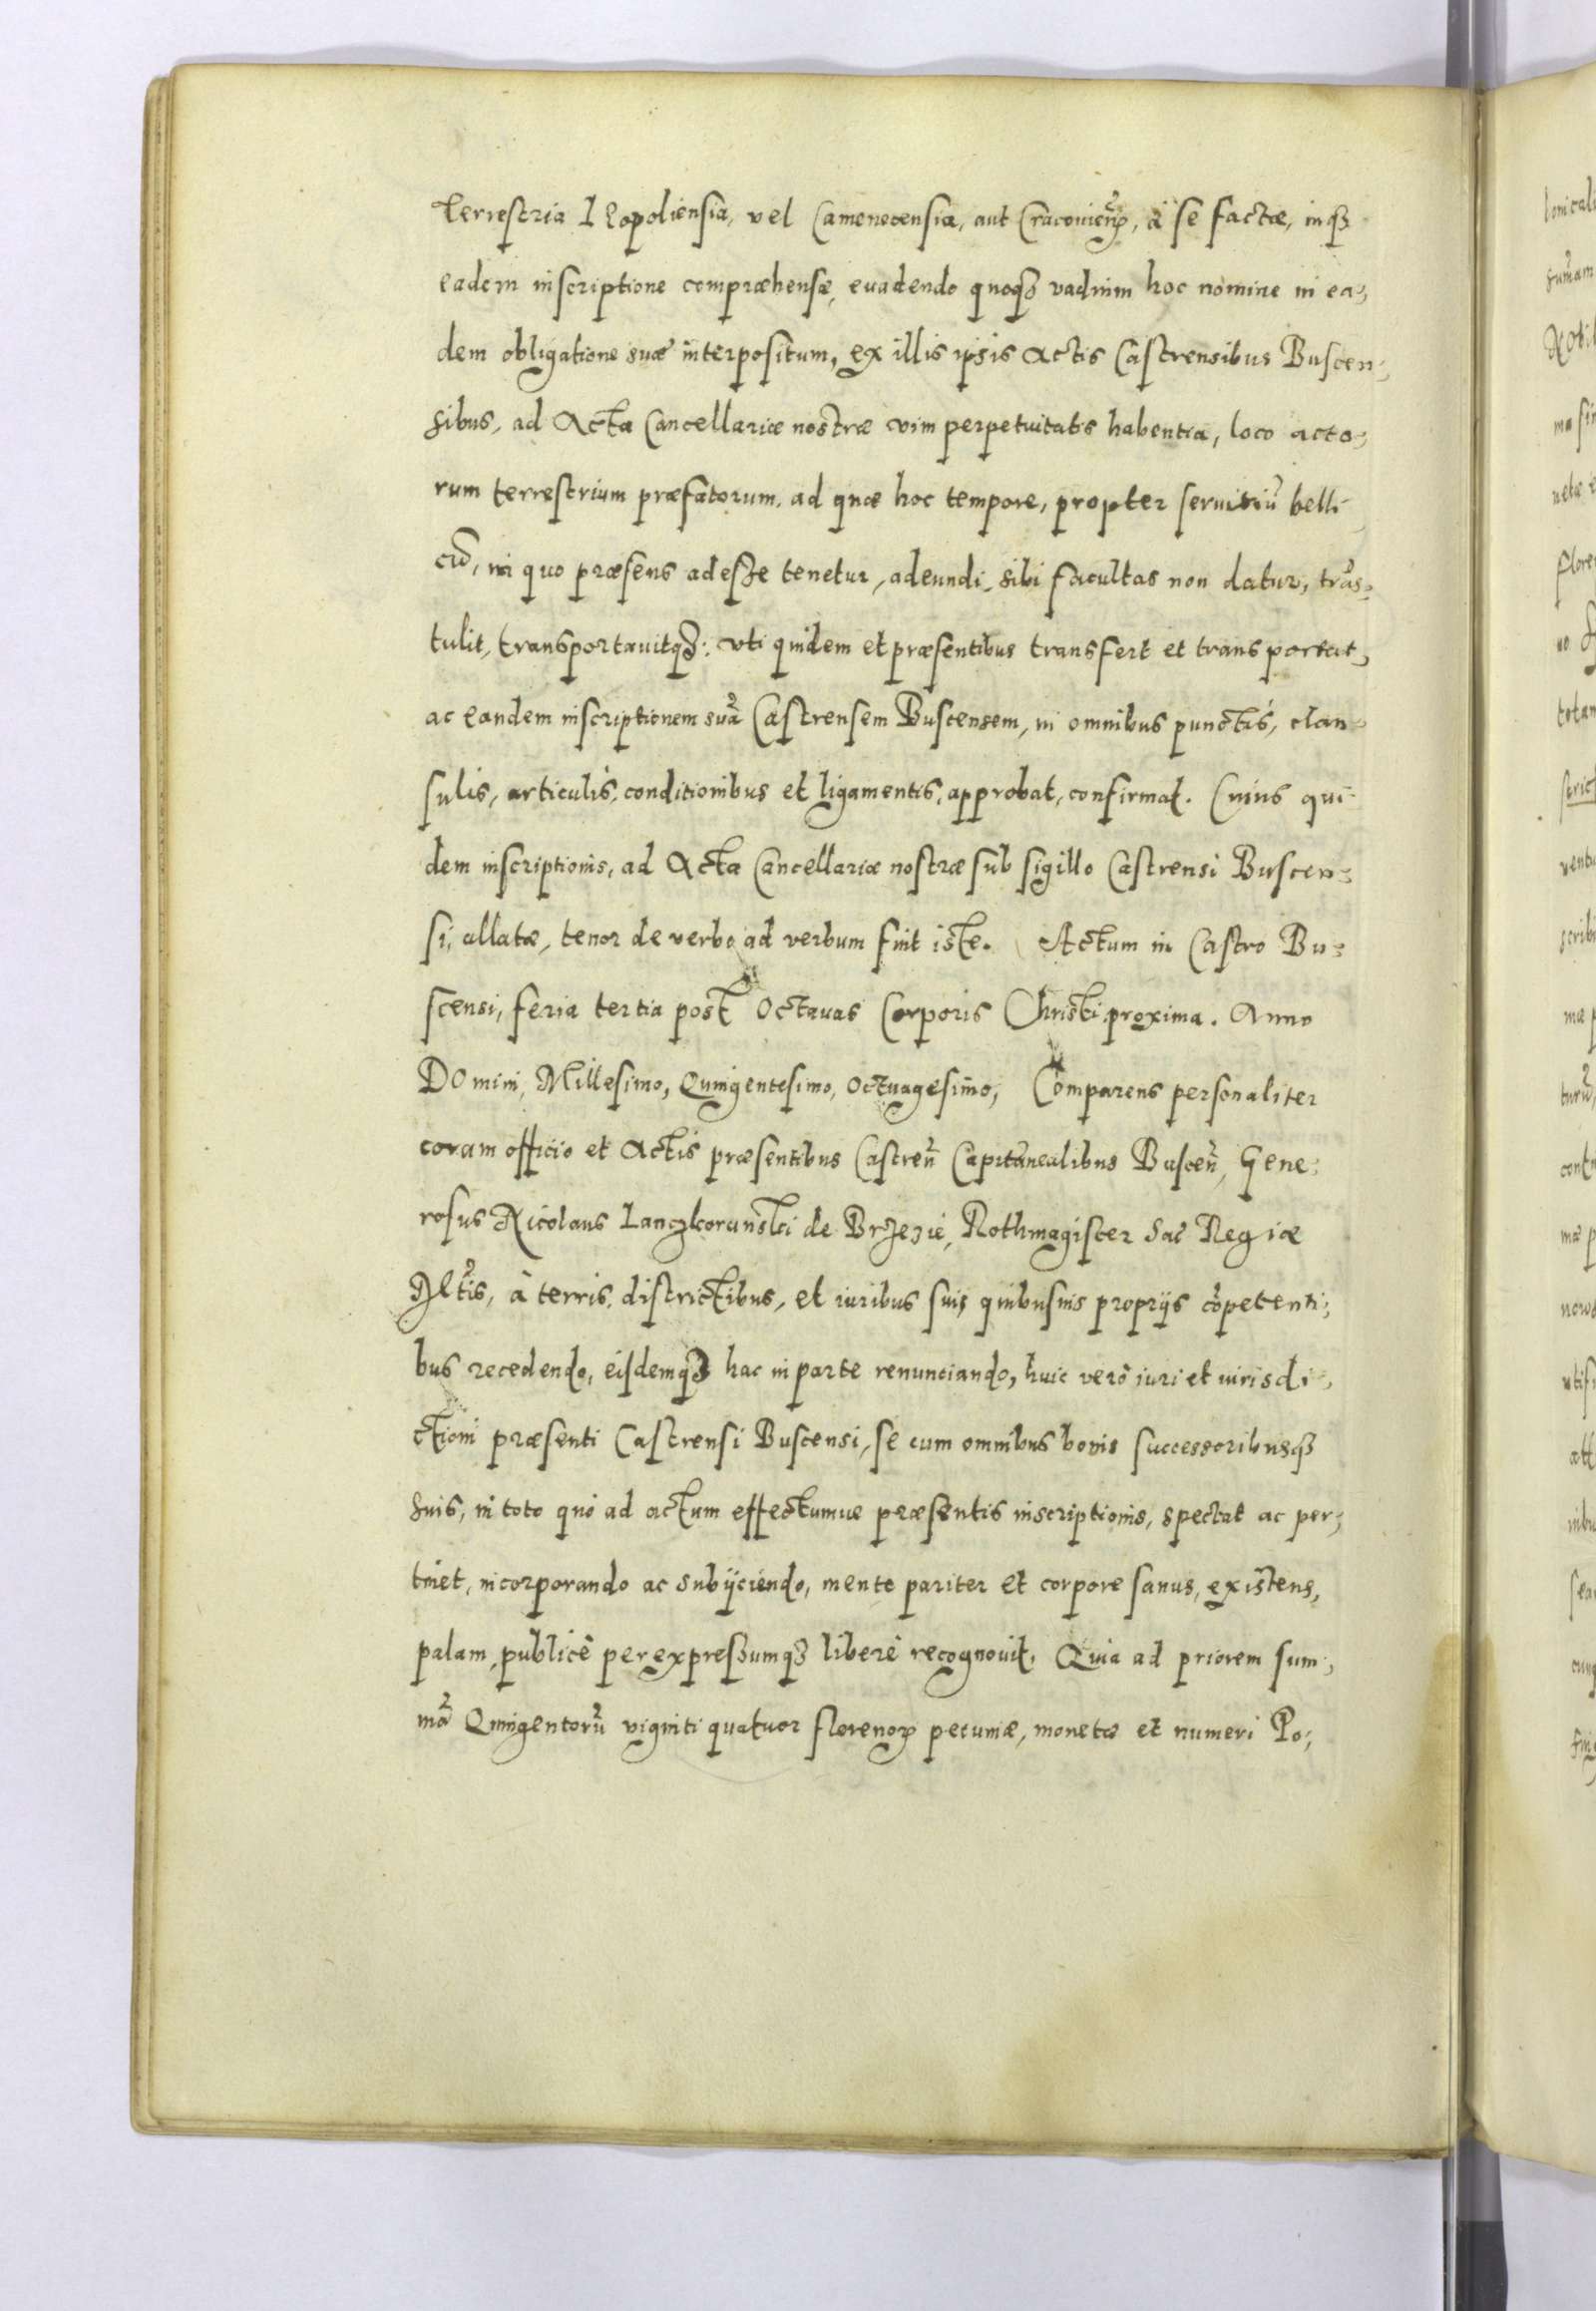 terrestria Leopoliensia, vel Camenecensia, aut Cracovien̄, à se factæ, inq3
eadem inscriptione compræhensæ, euadendo quoq3 vadium hoc nomine in ea-
dem obligatione suæ interpositum, ex illis ipsis Actis Castrensibus Buscen-
sibus, ad Acta Cancellariæ nostræ vim perpetuitatis habentia, loco acto-
rum terrestrium præfatorum, ad quæ hoc tempore, propter seruitiū belli
cū, in quo præsens adesse tenetur, adeundi sibi facultas non datur, trās-
tulit, transportauitq3: vti quidem et præsentibus transfert et transportat,
ac eandem inscriptionem suā Castrensem Buscensem, in omnibus punctis, clau-
sulis, articulis, conditionibus et ligamentis, approbat, confirmat. Cuius qui-
dem inscriptionis, ad Acta Cancellariæ nostræ sub sigillo Castrensi Buscen-
si, allatæ, tenor de verbo ad verbum fuit iste. Actum in Castro Bu-
scensi, feria tertia post Octauas Corporis Christi proxima. Anno
Domini, Millesimo, Quingentesimo, Octuagesimo, Comparens personaliter
coram officio et Actis præsentibus Castren̄ Capitanealibus Buscen̄, Gene-
rosus Nicolaus Lanczkorunski de Brzezie, Rothmagister Sac Regiæ
Mtis, à terris, districtibus, et iuribus suis quibusuis proprijs cōpetenti-
bus recedendo, eisdemq3 hac in parte renunciando, huic verò iuri et iurisdi-
ctioni præsenti Castrensi Buscensi, se cum omnibus bonis successoribusq3
suis, in toto quo ad actum effectumue præsentis inscriptionis, spectat ac per-
tinet, incorporando ac subijciendo, mente pariter et corpore sanus, existens,
palam, publicè per expressumq3 liberè recognouit. Quia ad priorem sum-
mā Quingentorū viginti quatuor florenoꝝ pecuniæ, monetæ et numeri Po-